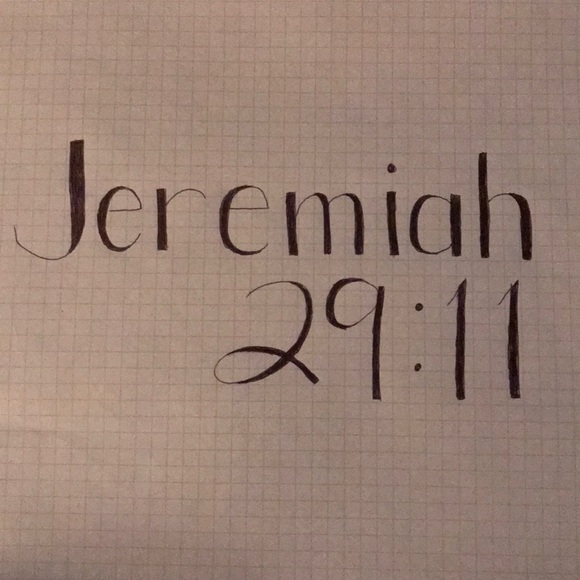 Jeremiah
29:11